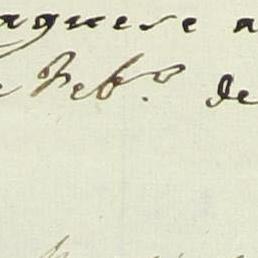 aguese a
e Feb.º de